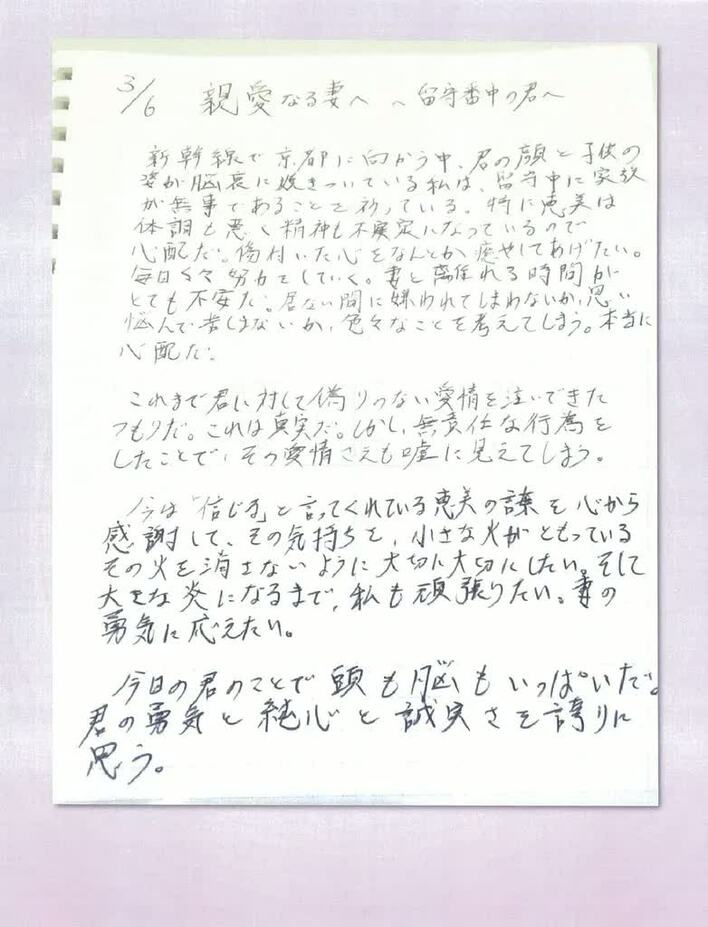 3/6 親愛なる妻へ 〜留守番中の君へ
新幹線で京都に向かう中、君の顔と子供の
姿が脳裏に焼きついている私は、留守中に家族
が無事であることを祈っている。特に恵美は
体調も悪く精神も不安定になっているので
心配だ。傷付いた心をなんとか癒やしてあげたい。
毎日々々努力をしていく。妻と離れる時間が
とても不安だ。居ない間に嫌われてしまわないか、思い
悩んで苦しまないか、色々なことを考えてしまう。本当に
心配だ。
これまで君に対して偽りのない愛情を注いできた
つもりだ。これは真実だ。しかし、無責任な行為を
したことで、その愛情さえも嘘に見えてしまう。
今は「信じる」と言ってくれている恵美の言葉を心から
感謝して、その気持ちを、小さな火がともっている
その火を消さないように大切に大切にしたい。そして
大きな炎になるまで、私も頑張りたい。妻の
勇気に応えたい。
今日の君のことで頭も脳もいっぱいだ。
君の勇気と純心と誠実さを誇りに
思う。